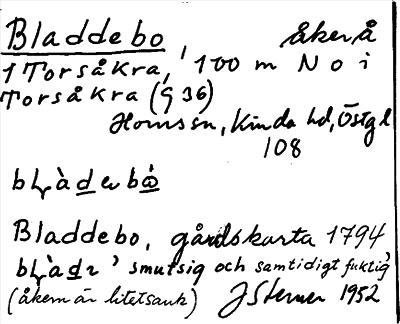 Bladdebo åker Å
1 Torsåkra, 100 m N o i
Torsåkra (G 36)
Hornssn, Kinda hd, Östgl
108
Bladdebo, gårdskarta 1794
smutsig och samtidigt fuktig'
(åkern är litet sank) J Sterner 1952